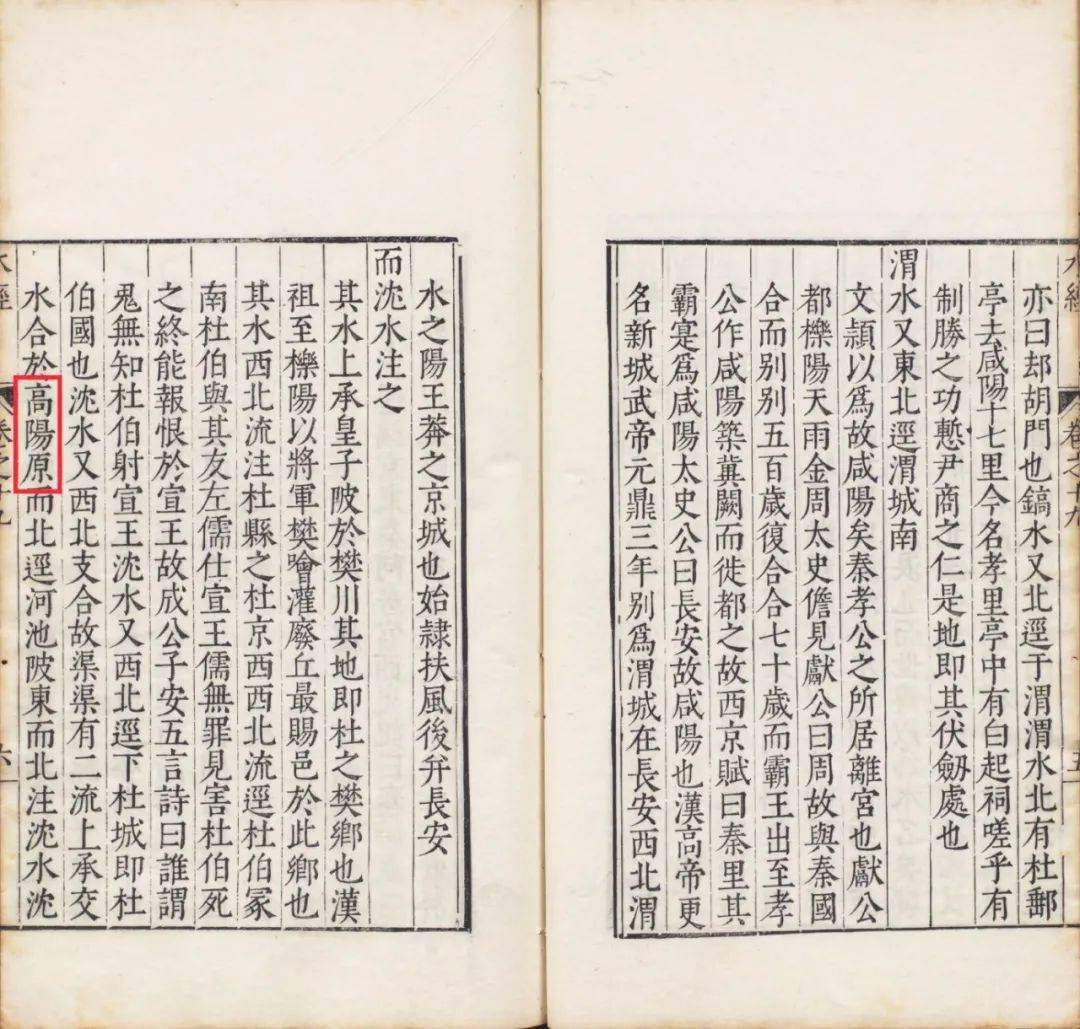 水經
卷之十九
五
亦曰却胡門也鎬水又北逕于渭渭水北有杜郵
亭去咸陽十七里今名孝里亭中有白起祠嗟乎有
制勝之功慙尹商之仁是地即其伏劒處也
渭水又東北逕渭城南
文頴以爲故咸陽矣秦孝公之所居離宮也獻公
都櫟陽天雨金周太史儋見獻公曰周故與秦國
合而别别五百歲復合合七十歲而霸王出至孝
公作咸陽築冀闕而徙都之故西京賦曰秦里其
霸寔爲咸陽太史公曰長安故咸陽也漢高帝更
名新城武帝元鼎三年别爲渭城在長安西北渭
水之陽王莽之京城也始隷扶風後弁長安
而沈水注之
其水上承皇子陂於樊川其地即杜之樊鄉也漢
祖至櫟陽以將軍樊噲灌廢丘最賜邑於此鄉也
其水西北流注杜縣之杜京西西北流逕杜伯冢
南杜伯與其友左儒仕宣王儒無罪見害杜伯死
之終能報恨於宣王故成公子安五言詩曰誰謂
鬼無知杜伯射宣王沈水又西北逕下杜城即杜
伯國也沈水又西北支合故渠渠有二流上承交
水合於高陽原而北逕河池陂東而北注沈水沈
水經
卷之十九
六